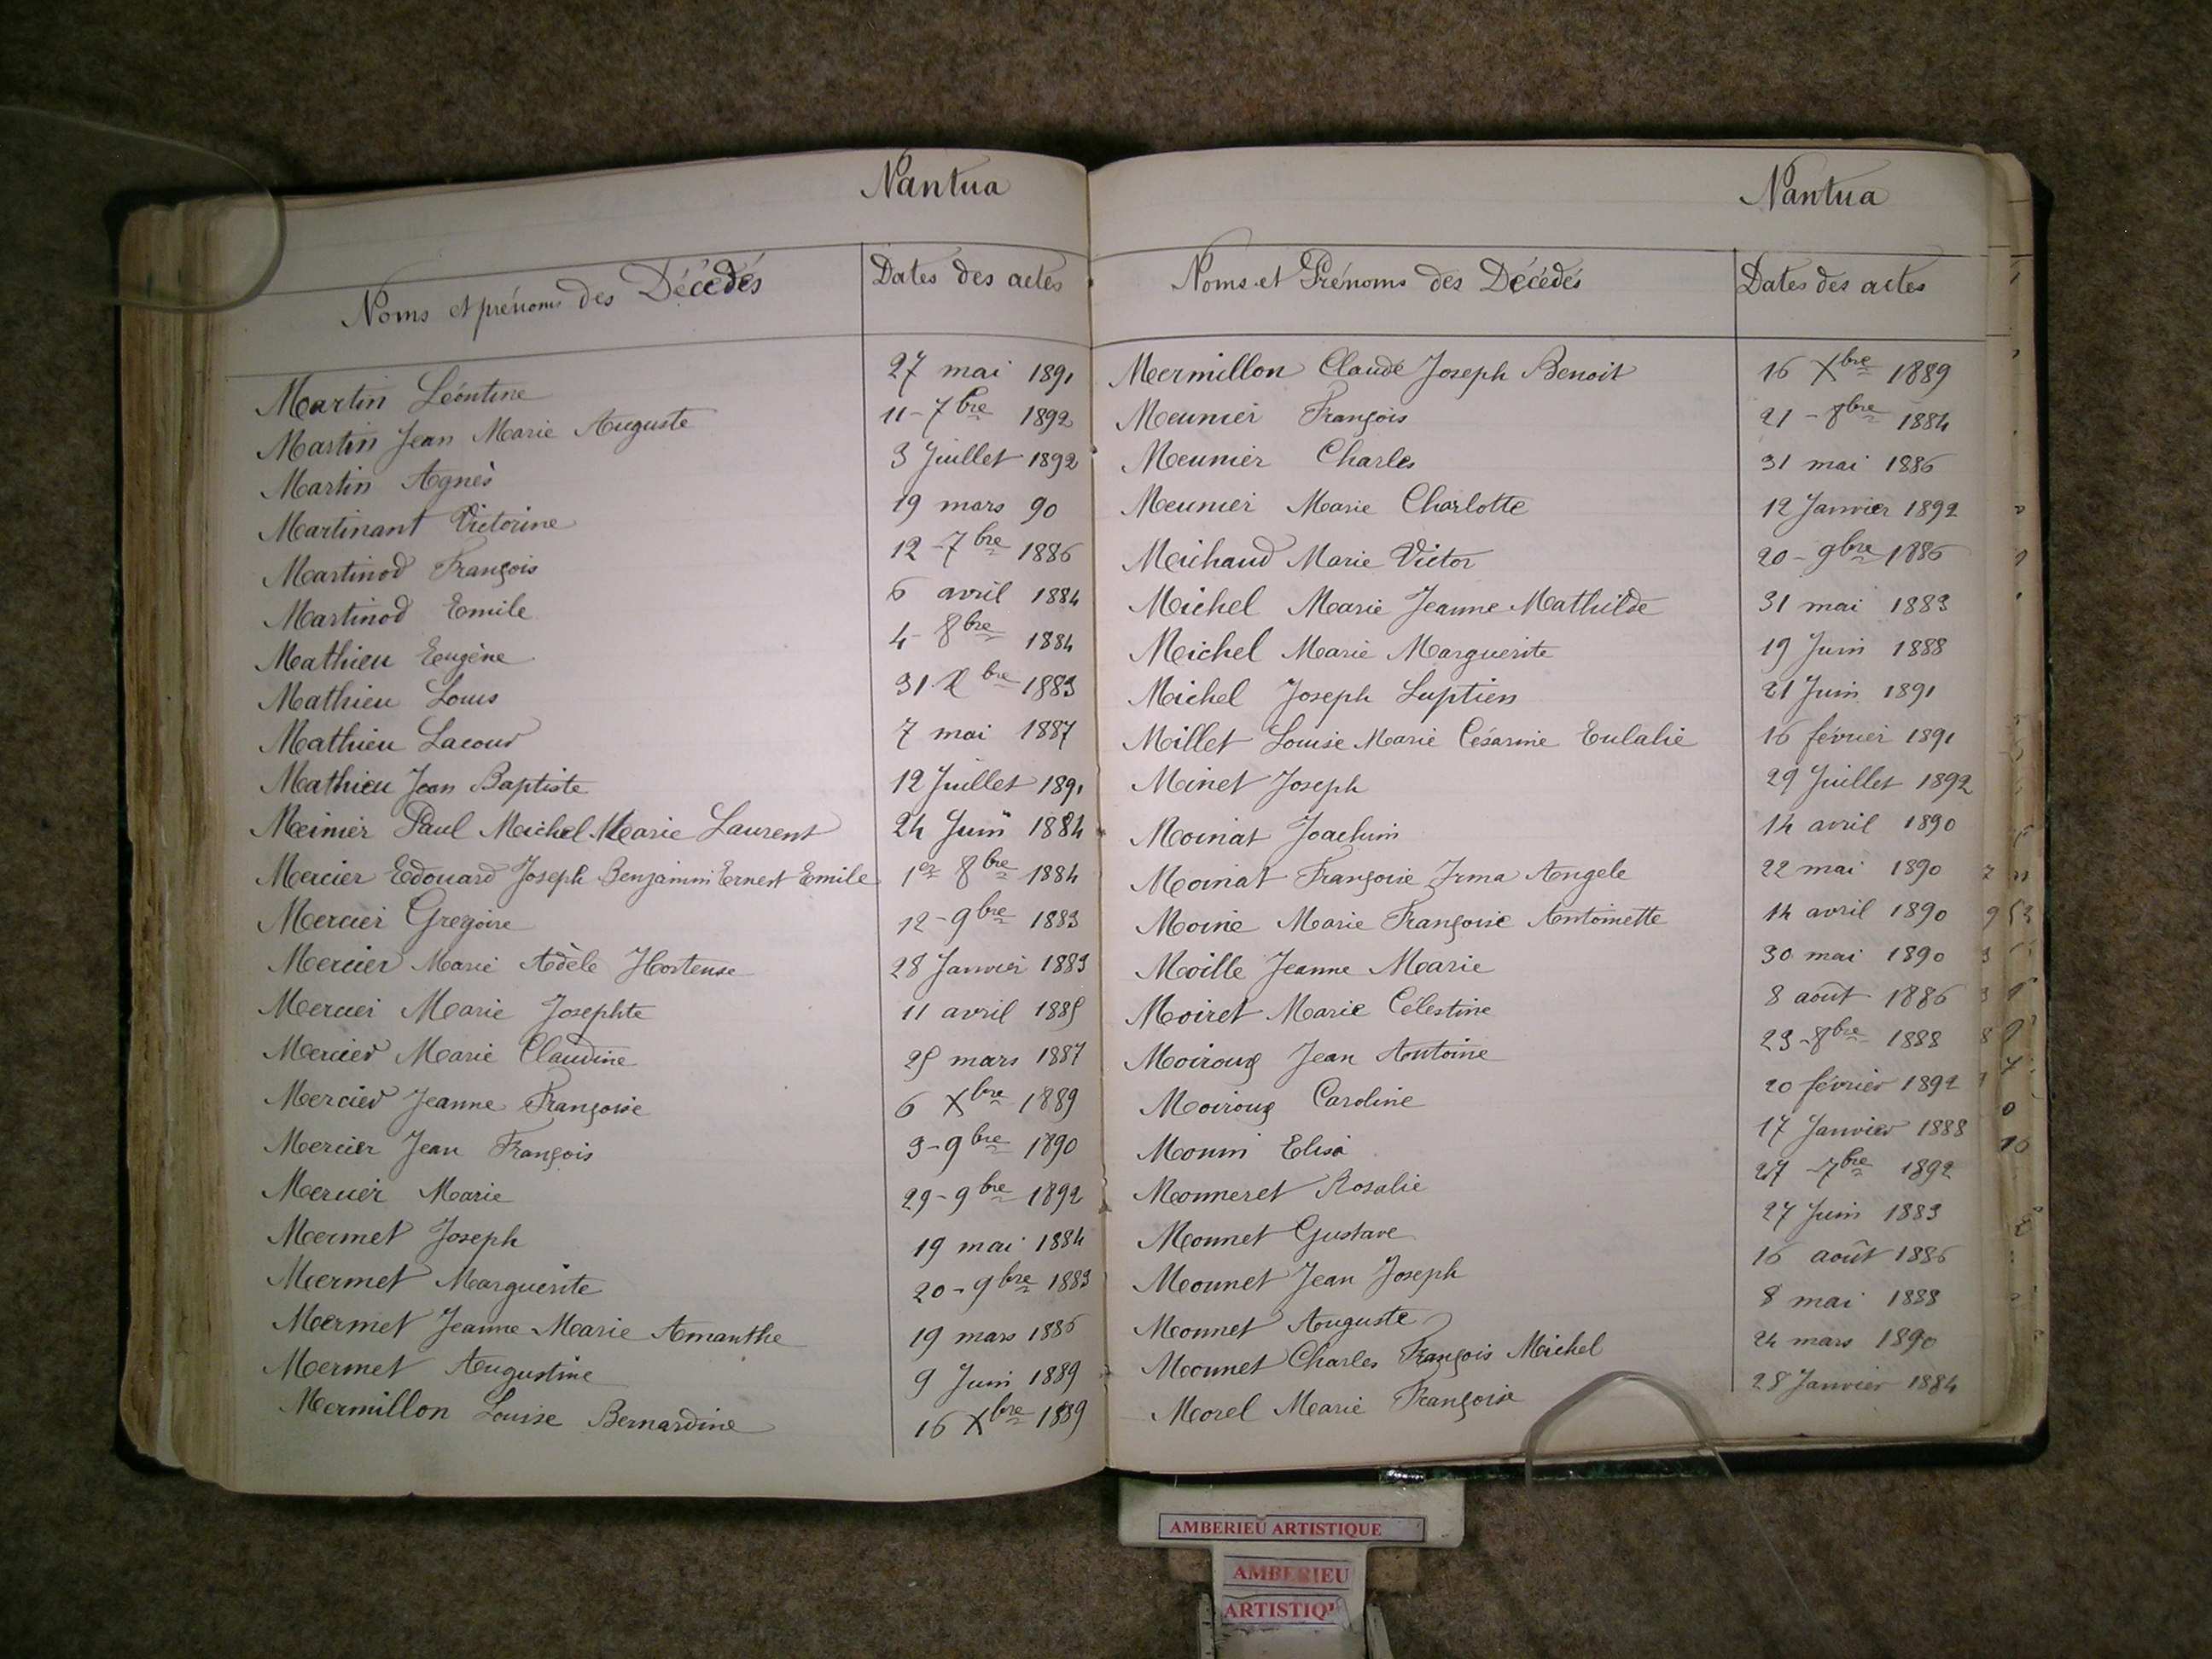 Nantua
Noms et prénoms des Décédés Dates des actes
Martin Léontine 27 mai 1891
Martin Jean Marie Auguste 11 - 7bre 1892
Martin Agnès 3 Juillet 1892
Martinant Victorine 19 mars 90
Martinod François 12 - 7bre 1886
Martinod Emile 6 avril 1884
Mathieu Eugène 4 - 8bre 1884
Mathieu Louis 31 Xbre 1883
Mathieu Lacour 7 mai 1887
Mathieu Jean Baptiste 12 Juillet 1891
Meinier Paul Michel Marie Laurent 24 Juin 1884
Mercier Edouard Joseph Benjamin Ernest Emile 1er 8bre 1884
Mercier Gregoire 12 - 9bre 1883
Mercier Marie Adèle Hortense 28 Janvier 1883
Mercier Marie Josephte 11 avril 1885
Mercier Marie Claudine 25 mars 1887
Mercier Jeanne Françoise 6 Xbre 1889
Mercier Jean François 3 - 9bre 1890
Mercier Marie 29 - 9bre 1892
Mermet Joseph 19 mai 1884
Mermet Marguerite 20 - 9bre 1883
Mermet Jeanne Marie Amanthe 19 mars 1886
Mermet Augustine 9 Juin 1889
Mermillon Louise Bernardine 16 Xbre 1889
Nantua
Noms et Prénoms des Décédés Dates des actes
Mermillon Claude Joseph Benoit 16 Xbre 1889
Meunier François 21 - 8bre 1884
Meunier Charles 31 mai 1886
Meunier Marie Charlotte 12 Janvier 1892
Michaud Marie Victor 20 - 9bre 1886
Michel Marie Jeanne Mathilde 31 mai 1883
Michel Marie Marguerite 19 Juin 1888
Michel Joseph Luptien 21 Juin 1891
Millet Louise Marie Césarine Eulalie 16 février 1891
Minet Joseph 29 Juillet 1892
Moinat Joachim 14 avril 1890
Moinat Françoise Irma Angele 22 mai 1890
Moine Marie Françoise Antoinette 14 avril 1890
Moille Jeanne Marie 30 mai 1890
Moiret Marie Célestine 8 août 1886
Moiroux Jean Antoine 23 - 8bre 1888
Moiroux Caroline 20 février 1892
Monin Elisa 17 Janvier 1888
Monneret Rosalie 27 - 7bre 1892
Monnet Gustave 27 Juin 1883
Monnet Jean Joseph 16 août 1886
Monnet Auguste 8 mai 1888
Monnet Charles François Michel 24 mars 1890
Morel Marie Françoise 28 Janvier 1884
AMBERIEU ARTISTIQUE
AMBERIEU